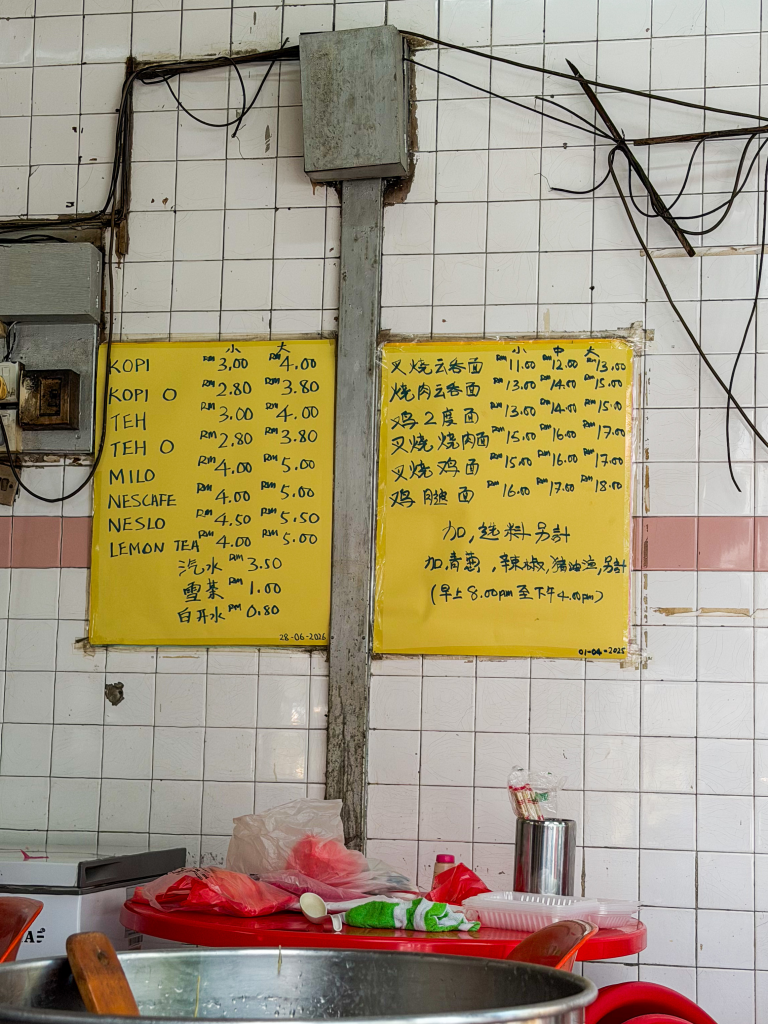 小 大
KOPI RM 3.00 RM 4.00
KOPI O RM 2.80 RM 3.80
TEH RM 3.00 RM 4.00
TEH O RM 2.80 RM 3.80
MILO RM 4.00 RM 5.00
NESCAFE RM 4.00 RM 5.00
NESLO RM 4.50 RM 5.50
LEMON TEA RM 4.00 RM 5.00
汽水 RM 3.50
雪茶 RM 1.00
白开水 RM 0.80
28-06-2026
小 中 大
叉烧云吞面 RM 11.00 RM 12.00 RM 13.00
烧肉云吞面 RM 13.00 RM 14.00 RM 15.00
鸡2度面 RM 13.00 RM 14.00 RM 15.00
叉烧烧肉面 RM 15.00 RM 16.00 RM 17.00
叉烧鸡面 RM 15.00 RM 16.00 RM 17.00
鸡腿面 RM 16.00 RM 17.00 RM 18.00
加,选料另計
加青葱,辣椒,猪油渣,另計
(早上8.00pm至下午4.00pm)
01-04-2025